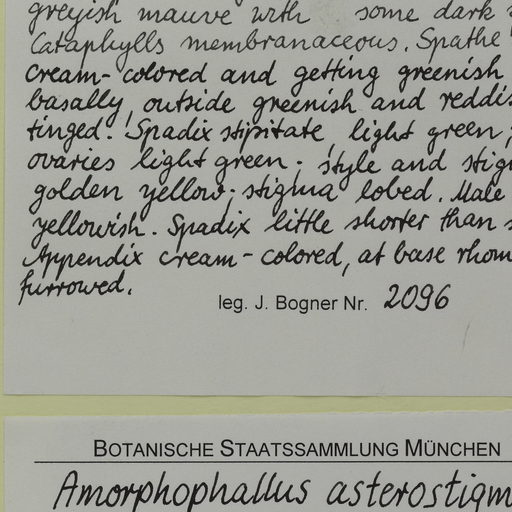 greyish mauve with some dark
Cataphylls membranaceous. Spathe
cream-colored and getting greenish
basally, outside greenish and reddis
tinged. Spadix stipitate, light green;
ovaries light green; style and stig
golden yellow; stigma lobed. Male
yellowish. Spadix little shorter than s
Appendix cream-colored, at base rhom
furrowed.
leg. J. Bogner Nr. 2096
BOTANISCHE STAATSSAMMLUNG MÜNCHEN
Amorphophallus asterostigm